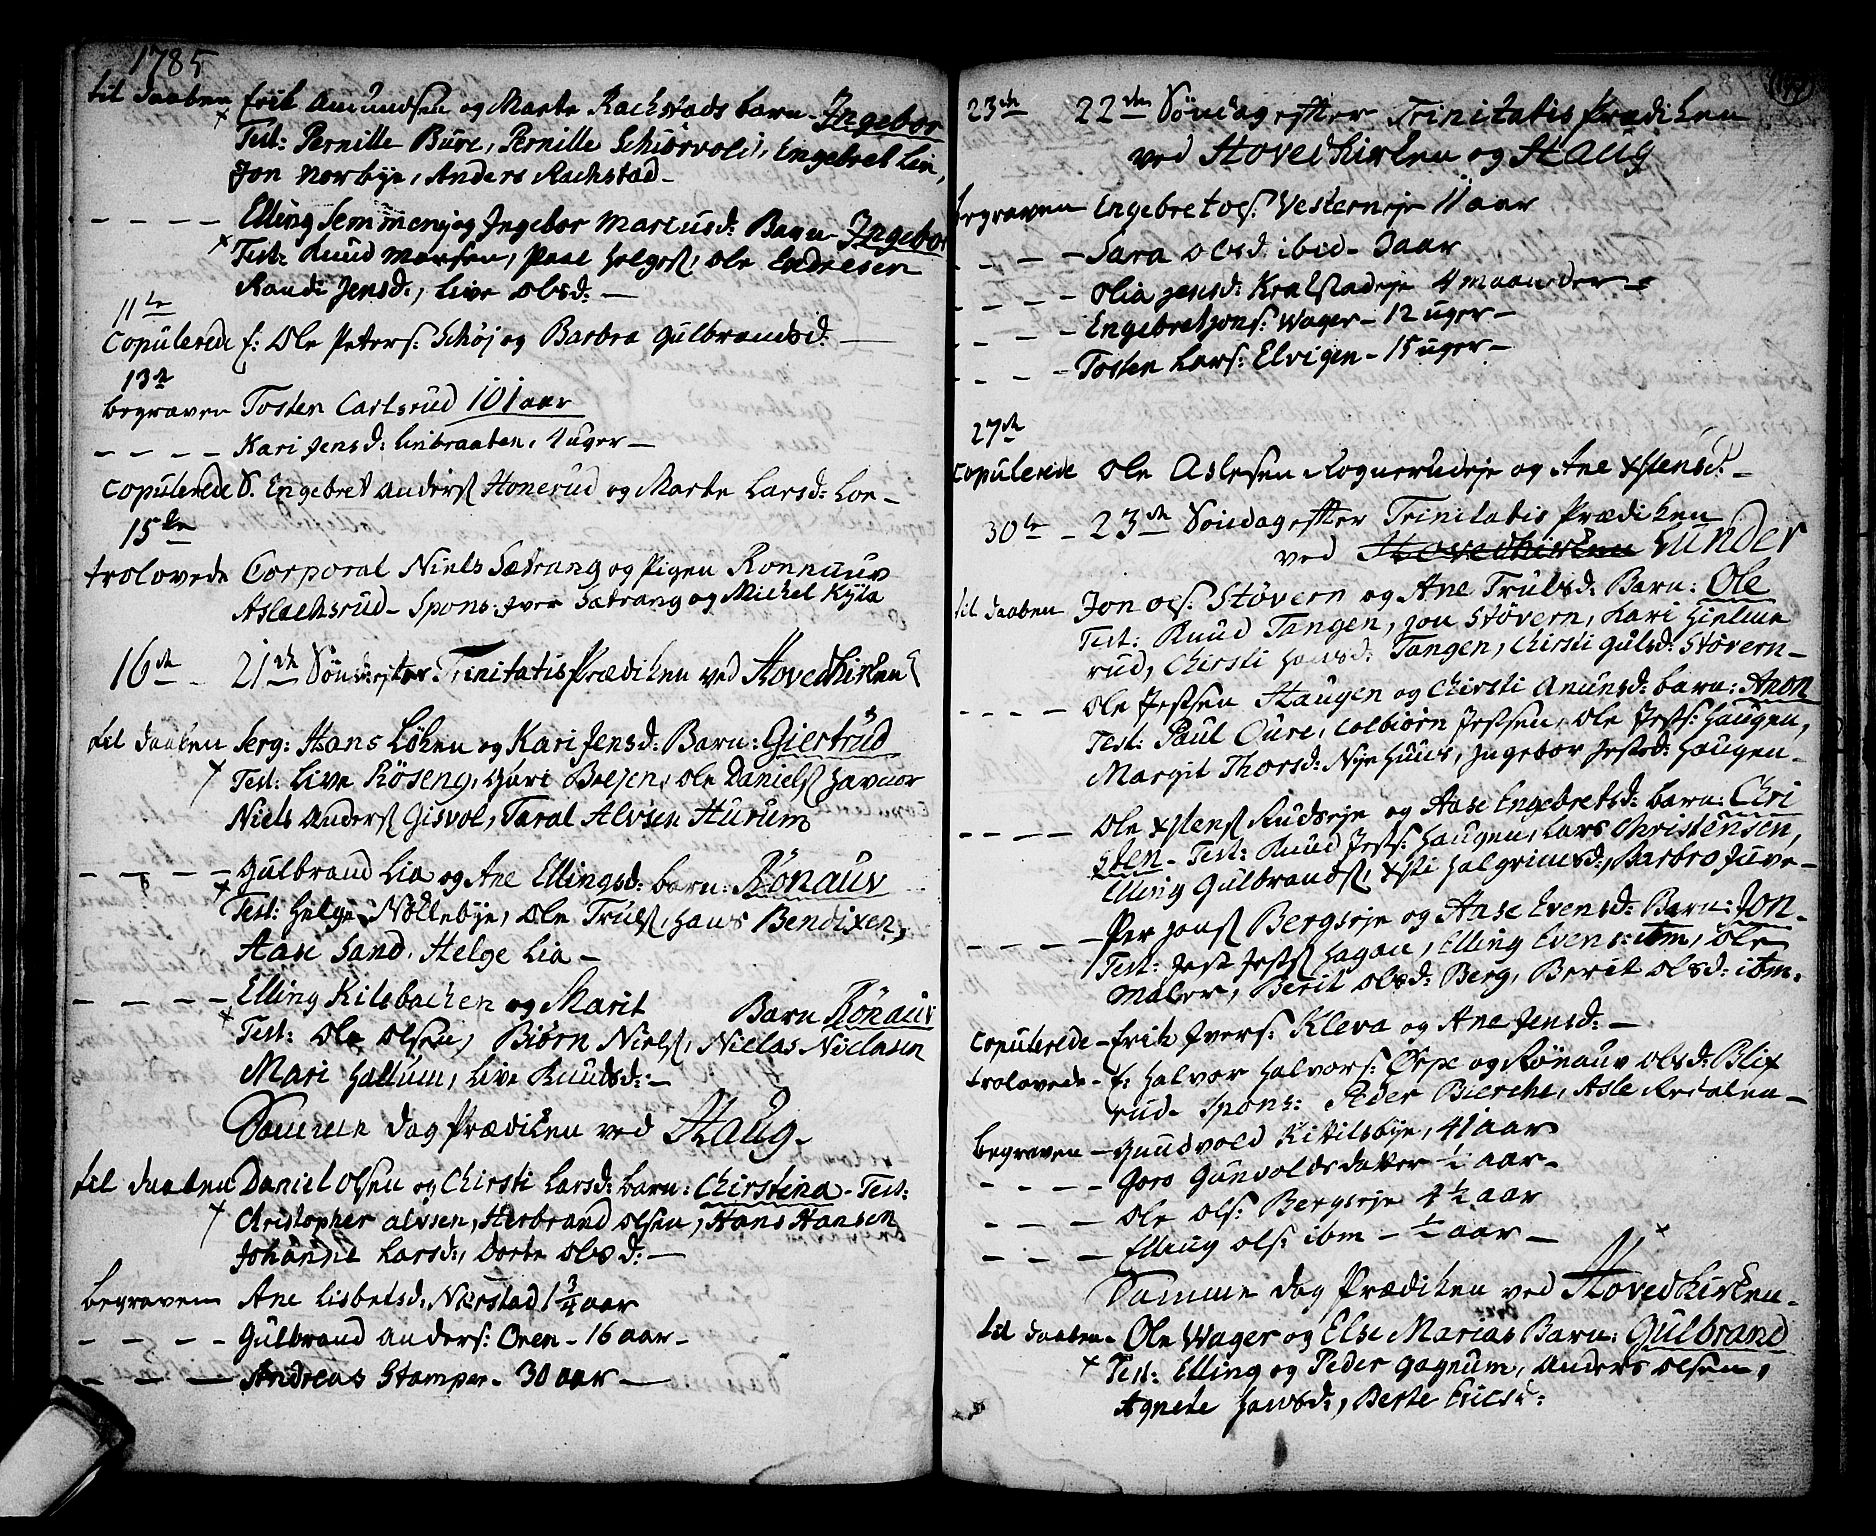 1785
til Daaben Erik Amundsen og Marte Rachstads barn Ingebor
Test: Pernille Bure, Pernille Schiørvold, Engebret Lin,
Jon Norbye, Anders Rachstad
Elling Semmenj og Ingebor Mariusd: Barn Ingebor
Test: Knud Morsen, Paal Helges, Ole Endresen
Randi Jensd:, Live Olsd:
11te
Copulerede f: Ole Peters: Schøj og Barbra Gulbrandsd.
13de
begraven Tosten Carlsrud 101 aar
Kari Jensd: Linbraaten, 4 uger
Copulerede S. Engebret Anders Honerud og Marte Larsd: Loe
15de
trolovede Corporal Niels Sætrang og Pigen Ronnauv
Aslachsrud Spons: Iver Sætrang og Michel Kyla
16de 21de Sønd: efter Trinitatis Prædiken ved Hovedkirken
til Daaben Serg: Hans Løken og Kari Jensd: Barn: Giertrud
Test: Live Røseng, Guri Boejen, Ole Daniels Havnor
Niels Anders Gisvol, Taral Alvsen Hurum
Gulbrand Lia og Ane Ellingsd: barn: Rønauv
Test: Helge Nøllebye, Ole Truls, Hans Bendixen,
Aase Sand, Helge Lia
Elling Kilsbachen og Marit Barn Rønauv
Test: Ole Olsen, Biørn Niels, Niclas Niclasen
Mari Hallum, Live Knudsd:
Samme dag Prædiken ved Haug
til Daaben Daniel Olsen og Chirsti Larsd: barn: Chirstina Test:
Christopher Alvsen, Herbrand Olsen, Hans Hansen
Johanne Larsd:, Dorte Olsd:
begraven Ane Lisbetsd: Nærstad 1 3/4 aar
Gulbrand Anders: Oren 16 aar
Andreas Stamper 30 aar
23de 22de Søndag efter Trinitatis Prædiken
ved Hovedkirken og Haug
begraven Engebret Ols: Vesterneje 11 aar
Sara Olsd: ibid 3 aar
Olia Jensd: Kralstadeje 4 maaneder
Engebret Jons: Wager 12 uger
Tosten Lars: Elvigen 15 uger
27de
Copulerede Ole Aslesen Rognerudeje og Ane Xstensd:
30te 23de Søndag efter Trinitatis Prædiken
ved Hovedkirken Lunder
til Daaben Jon Ols: Støvern og Ane Trulsd: Barn: Ole
Test: Knud Tangen, Jon Støvern, Kari Hielme
rud, Chirsti Hansd: Tangen, Chirsti Gulsd: Støvern
Ole Jessen Haugen og Chirsti Anunsd: barn: Anon
Test: Paul Oure, Colbiørn Jessen, Ole Jess: Haugen,
Margit Thorsd: Nyehuus, Ingebor Jessd: Haugen
Ole Xstens Rudseje og Aase Engebretsd: barn: Chri
sten Test: Knud Jess: Haugen, Lars Christensen,
Elling Gulbrands, Xsti Halgrimsd:, Barbro Juve
Per Jons Bergseje og Aase Evensd: Barn: Jon
Test: Jess Jess Hagan, Elling Evens: ibm, Ole
Maler, Berit Olsd: Berg, Berit Olsd: ibm.
Copulerede Erik Ivers: Kleva og Ane Jensd:
trolovede f: Halvor Halvors: Ørpe og Rønauv Olsd: Blix
rud Spons: Peder Bierche, Asle Redalen
begraven Gundvold Kittilsbye, 41 aar
Goro Gunvoldsdatter 1/2 aar
Ole Ols: Bergseje 4 1/2 aar
Elling Ols: ibm 1/2 aar
Samme dag Prædiken ved Hovedkirken
til Daaben Ole Wager og Else Marias Barn: Gulbrand
Test: Elling og Peder Gagnum, Anders Olsen,
Agnete Hansd:, Berte Ericsd: